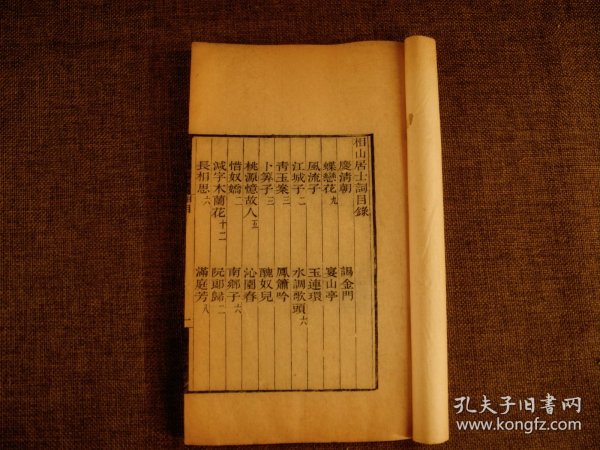 相山居士詞目錄
慶清朝 謁金門
蝶戀花九 宴山亭
風流子 玉連環
江城子二 水調歌頭六
青玉案三 鳳簫吟
卜算子三 醜奴兒
桃源憶故人五 沁園春
惜奴嬌二 南鄉子六
減字木蘭花十二 阮郎歸二
長相思六 滿庭芳八
一
孔夫子旧书网
www.kongfz.com